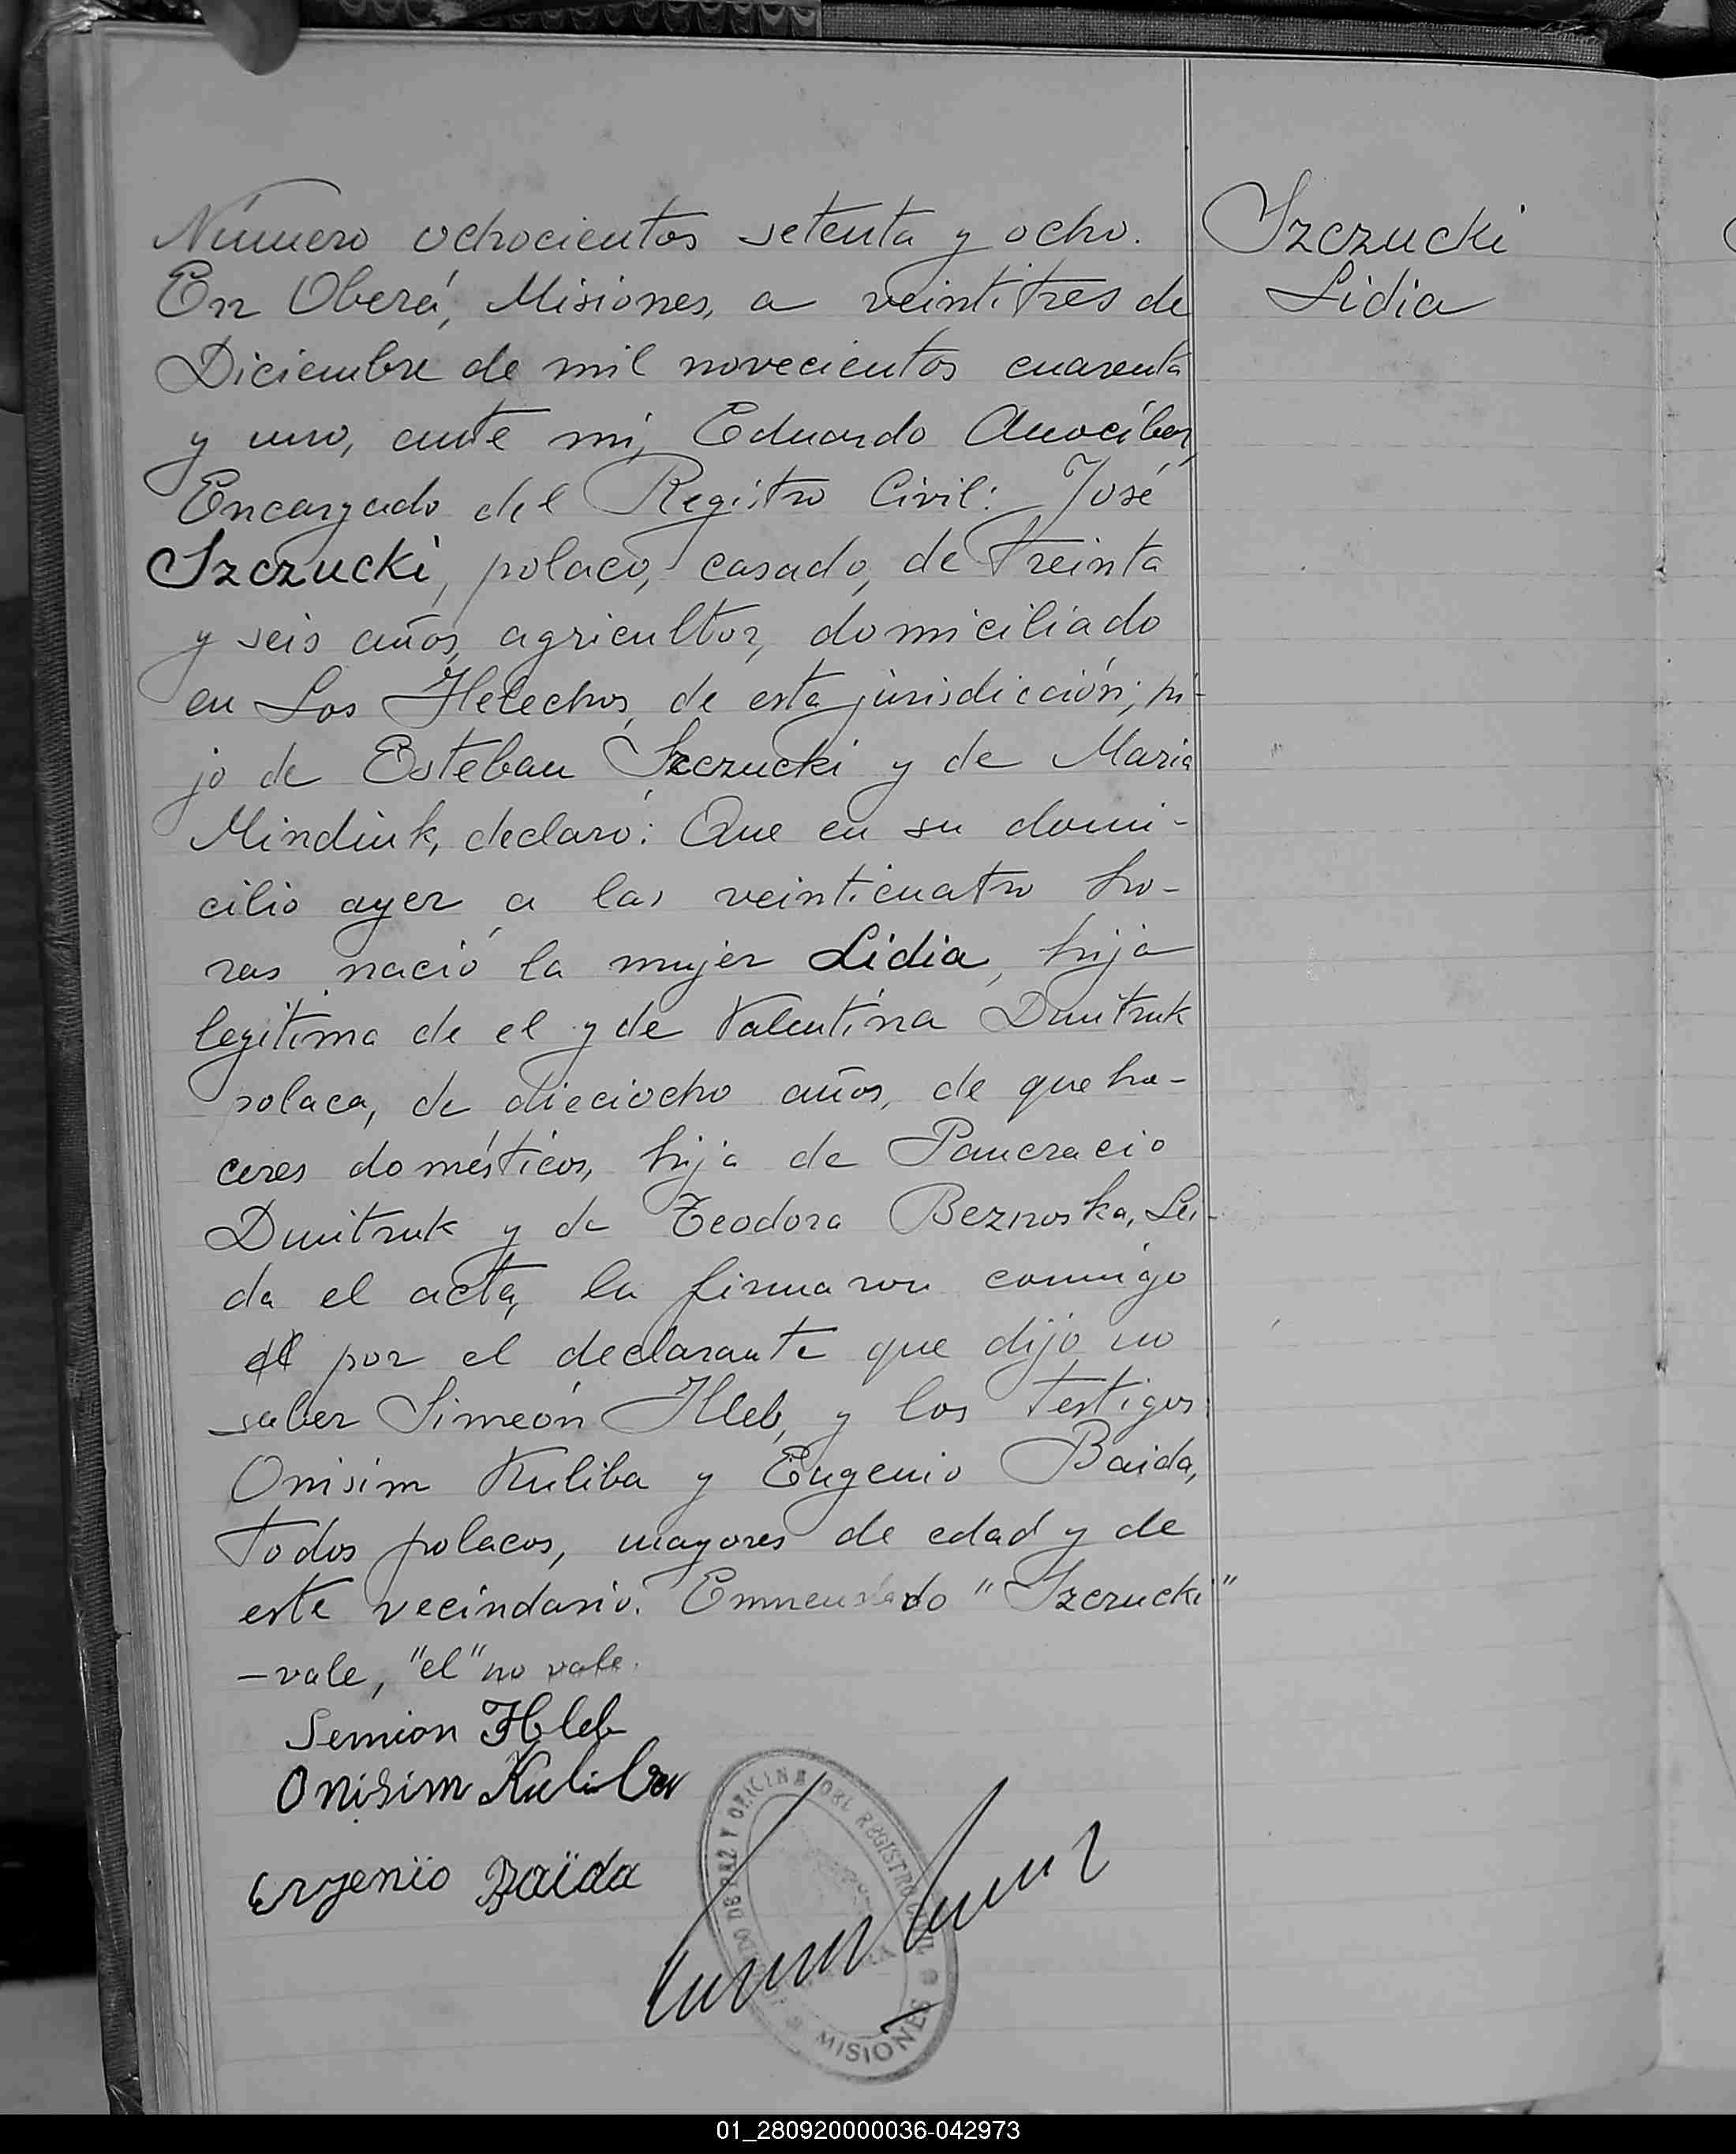 Número ochocientos setenta y ocho.
En Oberá, Misiones, a veintitres de
Diciembre de mil novecientos cuarenta
y uno, ante mi, Eduardo Anocíbar,
Encargado del Registro Civil: José
Szczucki, polaco, casado, de treinta
y seis años, agricultor, domiciliado
en Los Helechos, de esta jurisdicción; hi-
jo de Esteban Szczucki y de Maria
Mindiuk, declaró: Que en su domi-
cilio ayer a las veinticuatro ho-
ras nació la mujer Lidia, hija
legítima de el y de Valentina Dmitruk
polaca, de dieciocho años, de queha-
ceres domésticos, hija de Pancracio
Dmitruk y de Teodora Beznoska, Lei-
da el acta, la firmaron conmigo
el por el declarante que dijo no
saber Simeón Hleb, y los testigos:
Onisim Kuliba y Eugenio Baida,
todos polacos, mayores de edad y de
este vecindario. Enmendado "Szczucki"
-vale, "el" no vale.
Semion Hleb
Onisim Kuliba
Eugenio Baïda
Szczucki
Lidia
DE PAZ Y OFICINA DEL REGISTRO CIVIL
MISIONES
01_280920000036-042973